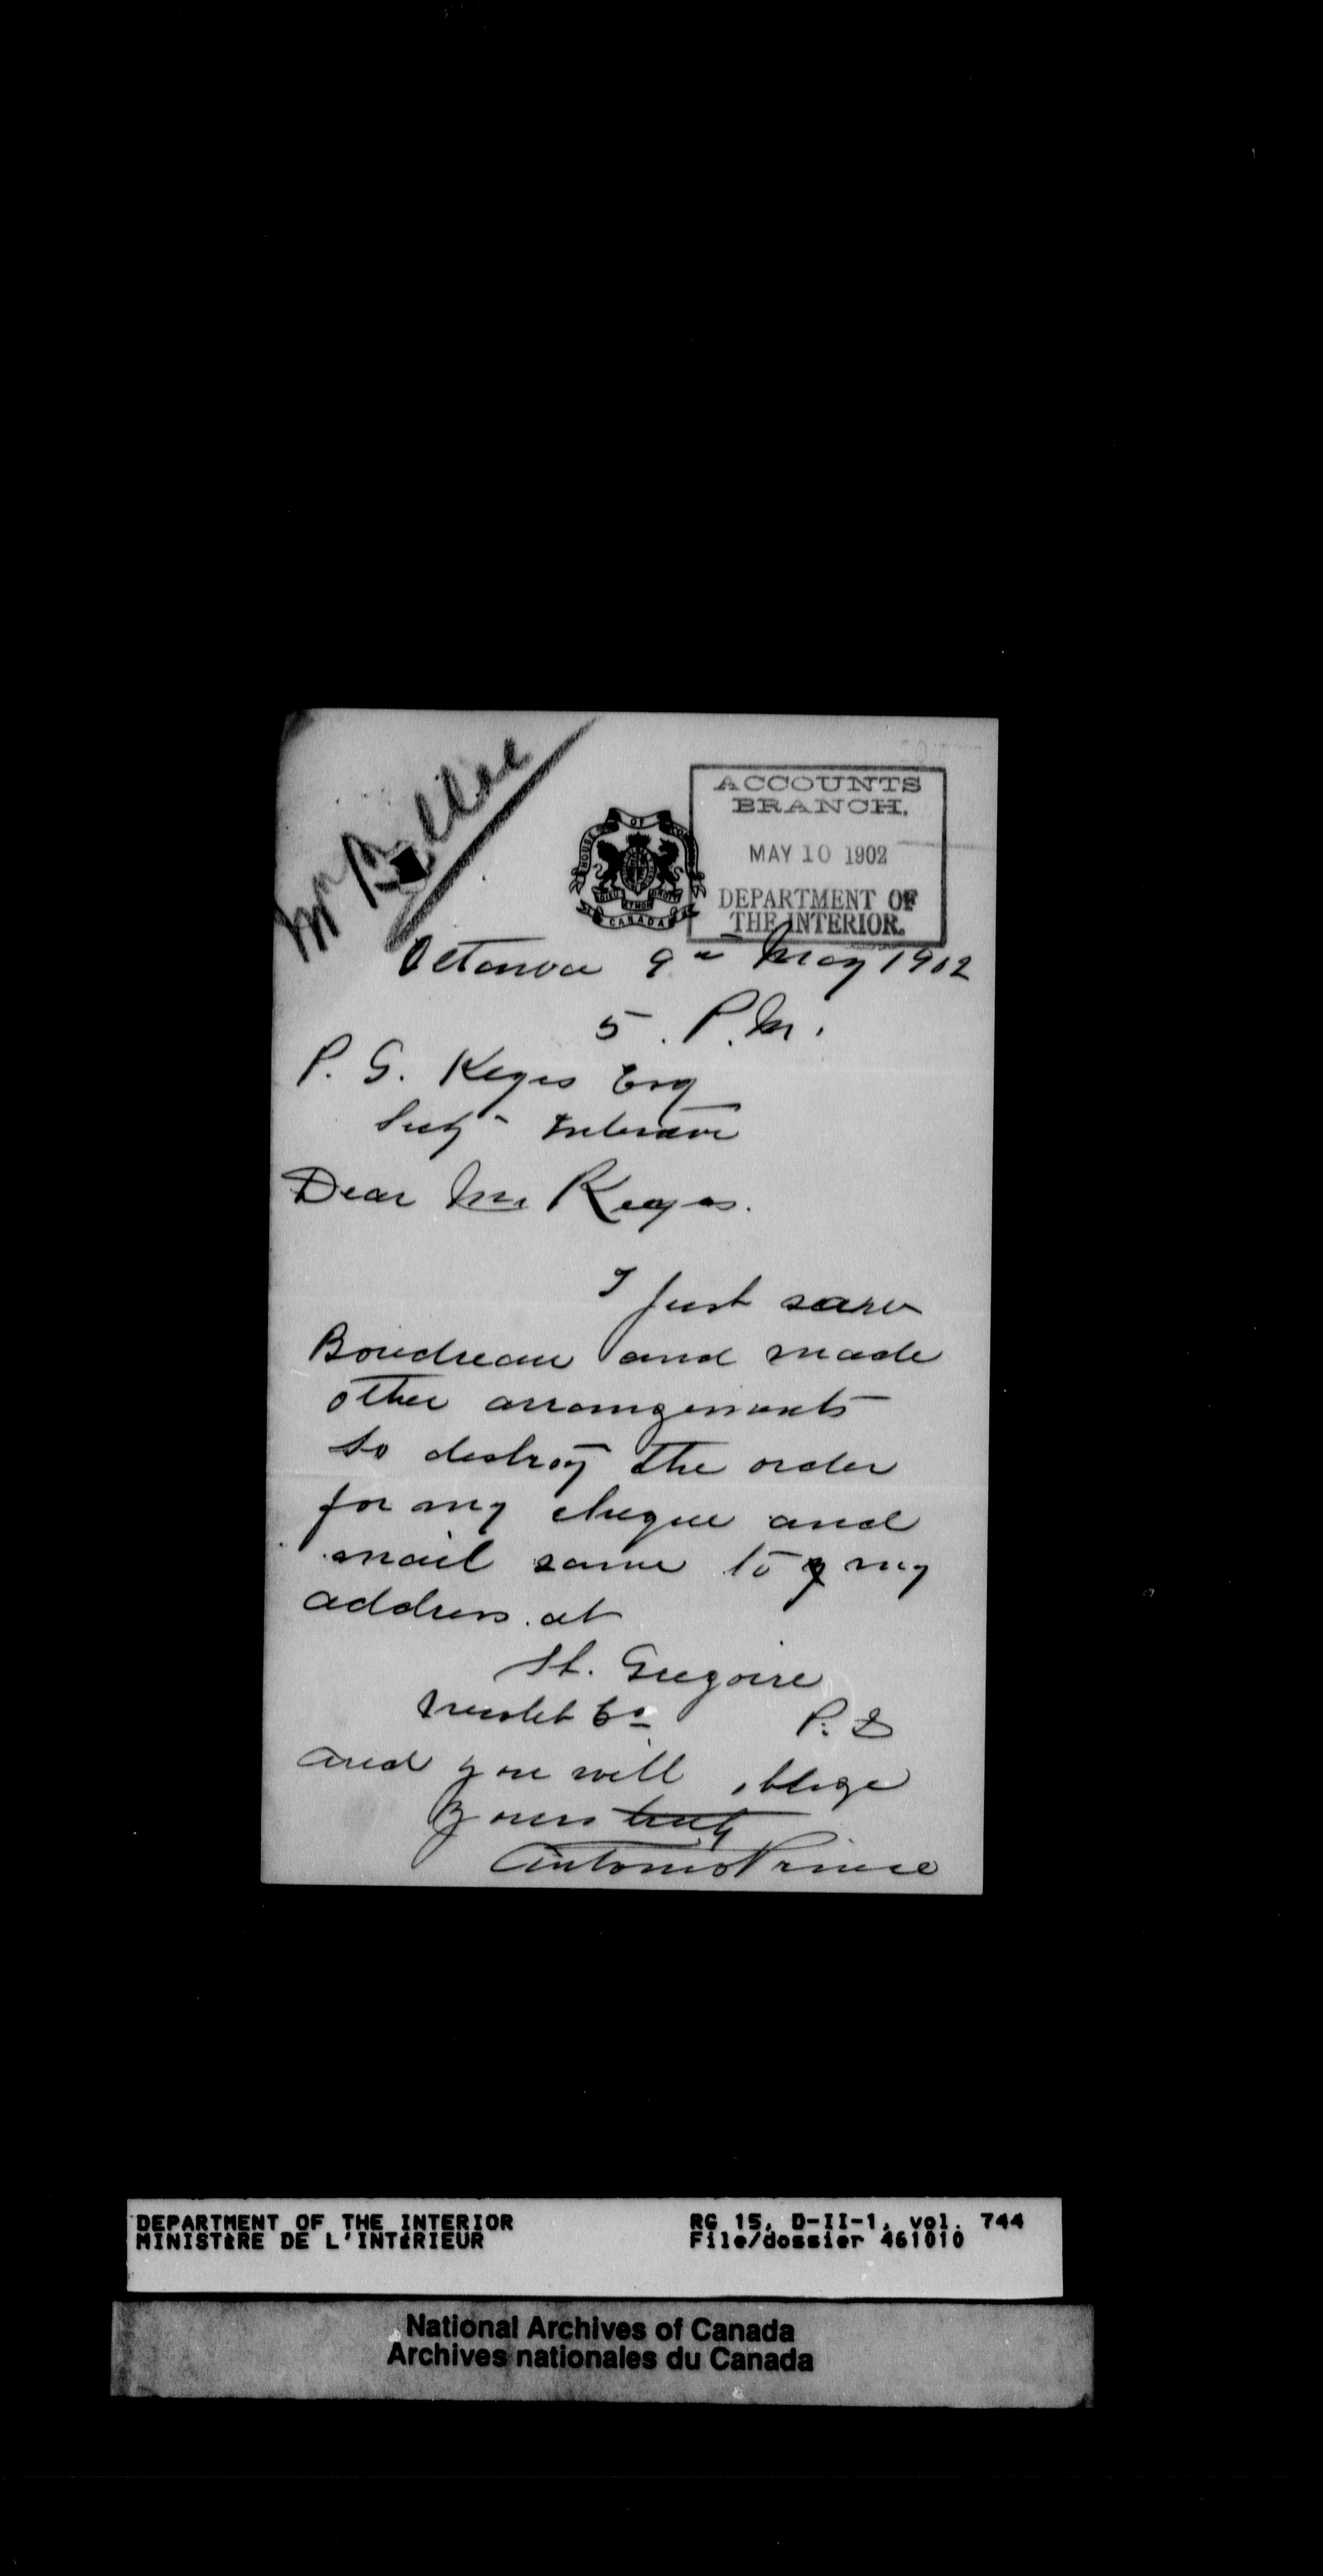 Mr Bellse
ACCOUNTS
BRANCH.
MAY 10 1902
DEPARTMENT OF
THE INTERIOR.
HOUSE OF COMMONS
DIEU ET MON DROIT
CANADA
Ottawa 9th May 1902
5. P.M.
P. G. Keyes Esq
Secty Interior
Dear Mr Keyes.
I just saw
Boudreau and made
other arrangements
so destroy the order
for my cheque and
mail same to my
address. at
St. Gregoire
Nicolet Co P. Q
and you will oblige
Yours truly
Antonio Prince
DEPARTMENT OF THE INTERIOR
MINISTÈRE DE L'INTÉRIEUR
RG 15, D-II-1, vol. 744
File/dossier 461010
National Archives of Canada
Archives nationales du Canada